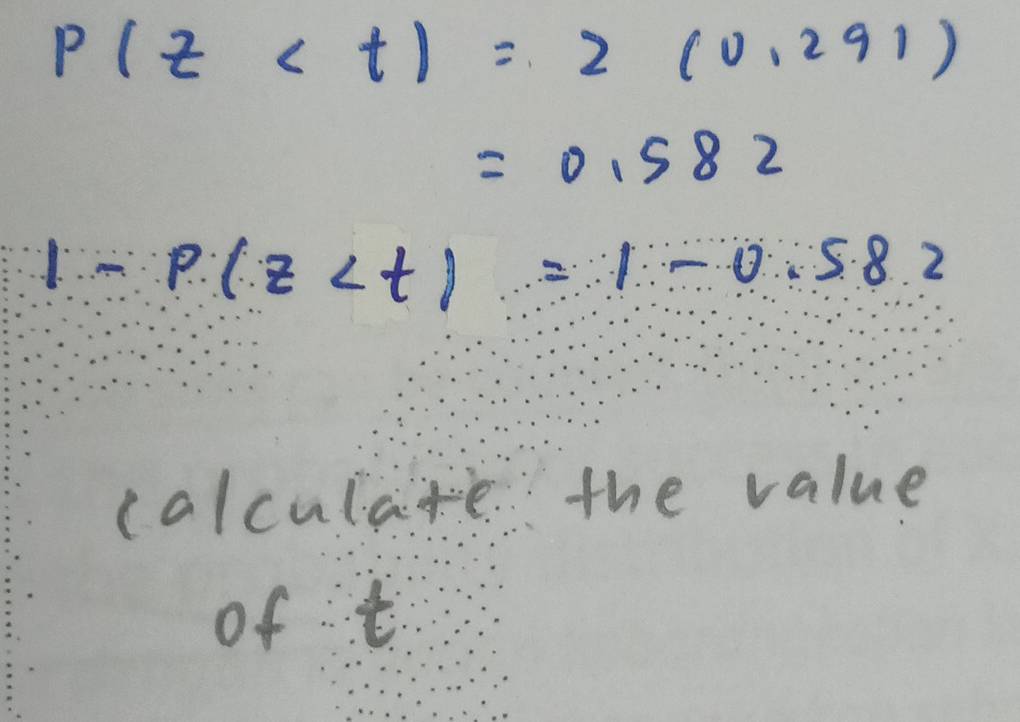 P(Z < t) = 2 (0.291)
= 0.582
1 - P(Z < t) = 1 - 0.582
calculate the value
of t